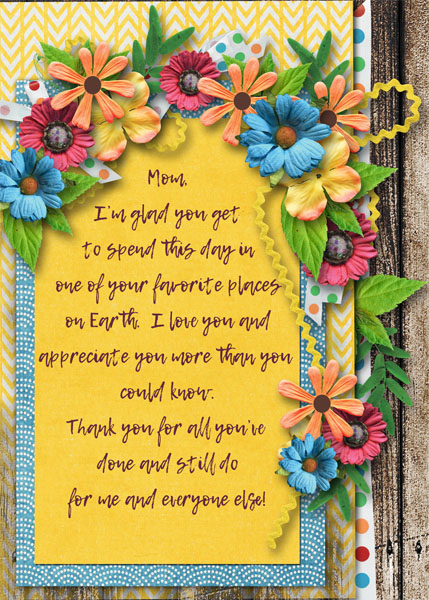 Mom,
I'm glad you get
to spend this day in
one of your favorite places
on Earth. I love you and
appreciate you more than you
could know.
Thank you for all you've
done and still do
for me and everyone else!